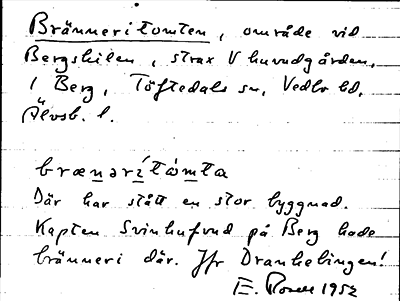 Bränneritomten, område vid
Bergskilen, strax V huvudgården,
1 Berg, Töftedals sn, Vedbo hd,
Älvsb. l.
brænərítòmta
Där har stått en stor byggnad.
Kapten Svinhufvud på Berg hade
bränneri där. Jfr Drankebingen!
E. 1952